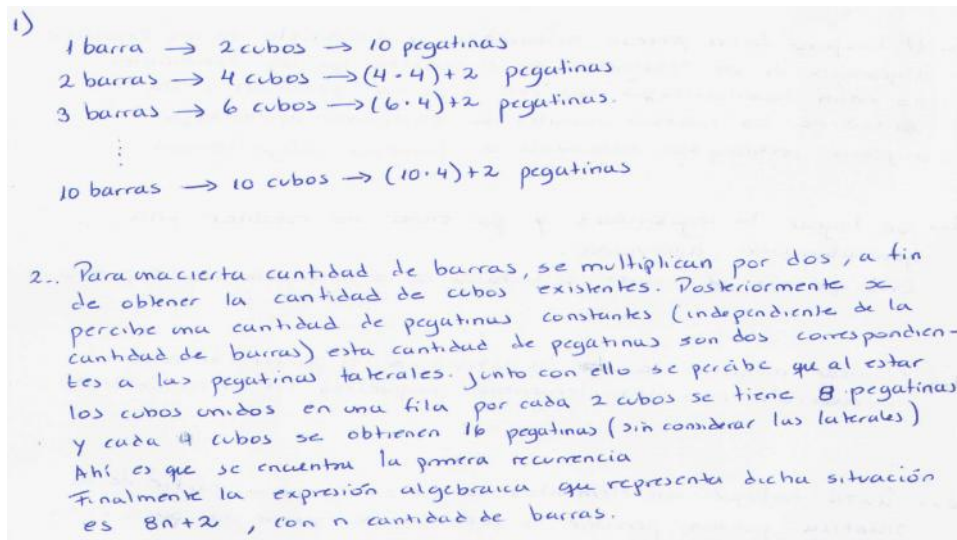 1)
1 barra → 2 cubos → 10 pegatinas
2 barras → 4 cubos → (4·4)+2 pegatinas
3 barras → 6 cubos → (6·4)+2 pegatinas.
⋮
10 barras → 10 cubos → (10·4)+2 pegatinas
2.. Para una cierta cantidad de barras, se multiplican por dos, a fin
de obtener la cantidad de cubos existentes. Posteriormente se
percibe una cantidad de pegatinas constantes (independiente de la
cantidad de barras) esta cantidad de pegatinas son dos correspondien-
tes a las pegatinas laterales. Junto con ello se percibe qu al estar
los cubos unidos en una fila por cada 2 cubos se tiene 8 pegatinas
y cada 4 cubos se obtienen 16 pegatinas (sin considerar las laterales)
Ahí es que se encuentra la primera recurrencia
Finalmente la expresión algebraica que representa dicha situación
es 8n+2, con n cantidad de barras.